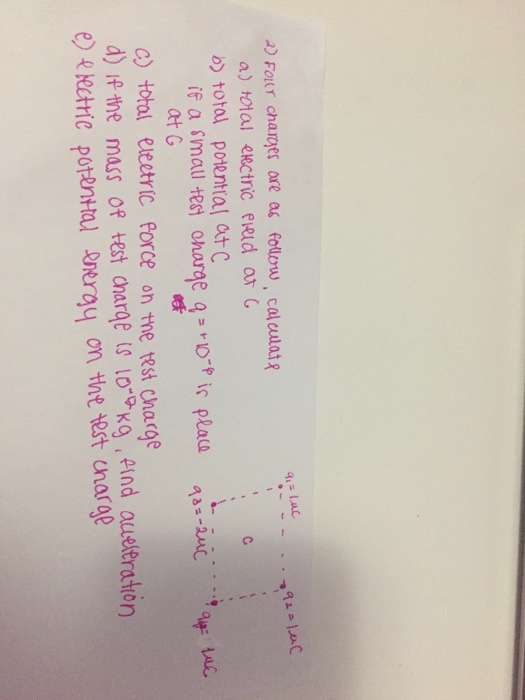 2) Four charges are as follow, calculate
a) total electric field at C
b) total potential at C
if a small test charge q = +10⁻⁶ is place
at C
c) total electric force on the test charge
d) if the mass of test charge is 10⁻² kg, find acceleration
e) electric potential energy on the test charge
q1 = 1µC
q2 = 1µC
C
q3 = -2µC
q4 = 1µC